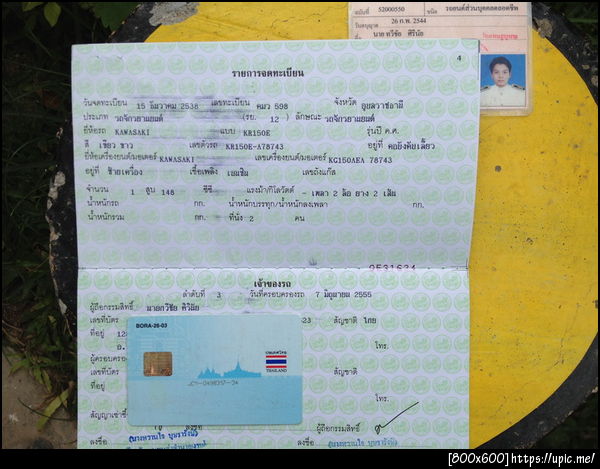 ฉบับที่ 52000550 รถยนต์ส่วนบุคคลตลอดชีพ
วันอนุญาต 26 ก.พ. 2544
ชื่อ นาย ทวีชัย ศิรินัย
4
รายการจดทะเบียน
วันจดทะเบียน 15 ธันวาคม 2538 เลขทะเบียน คมว 598 จังหวัด
ประเภท รถจักรยานยนต์ (รย. 12 ) ลักษณะ รถจักรยานยนต์
ยี่ห้อรถ KAWASAKI แบบ KR150E รุ่นปี ค.ศ.
สี เขียว ขาว เลขตัวรถ KR150E-A78743 อยู่ที่ คอยึดคันเลี้ยว
ยี่ห้อเครื่องยนต์/มอเตอร์ KAWASAKI เลขเครื่องยนต์/มอเตอร์ KG150AEA 78743
อยู่ที่ ซ้ายเครื่อง เชื้อเพลิง เบนซิน เลขถังแก๊ส
จำนวน 1 สูบ 148 ซีซี แรงม้า/กิโลวัตต์ - เพลา 2 ล้อ ยาง 2 เส้น
น้ำหนักรถ กก. น้ำหนักบรรทุก/น้ำหนักลงเพลา กก.
น้ำหนักรวม กก. ที่นั่ง 2 คน
เจ้าของรถ
ลำดับที่ 3 วันที่ครอบครองรถ 7 มิถุนายน 2555
ผู้ถือกรรมสิทธิ์ นายทวีชัย ศิรินัย
เลขที่บัตร 23 สัญชาติ ไทย
ที่อยู่ 12
อ. โทร.
ผู้ครอบครอง
เลขที่บัตร สัญชาติ
ที่อยู่
โทร.
สัญญาเช่าซื้อ ผู้ถือกรรมสิทธิ์
ลงชื่อ ลงชื่อ
BORA-26-03
ประเทศไทย
THAILAND
[800x600]https://upic.me/